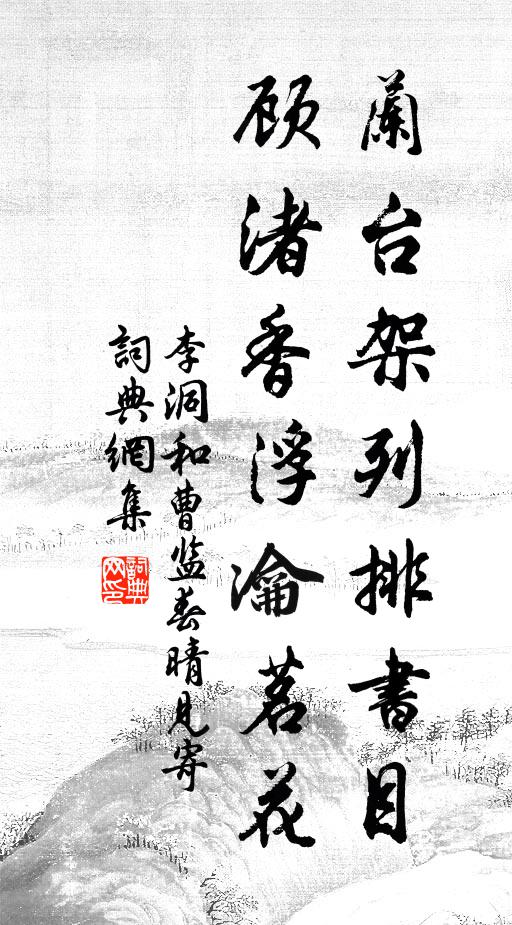 蘭台架列排書目
顾渚香浮瀹茗花
李洞和曹监春晴見寄
詞典網集
詞典網印